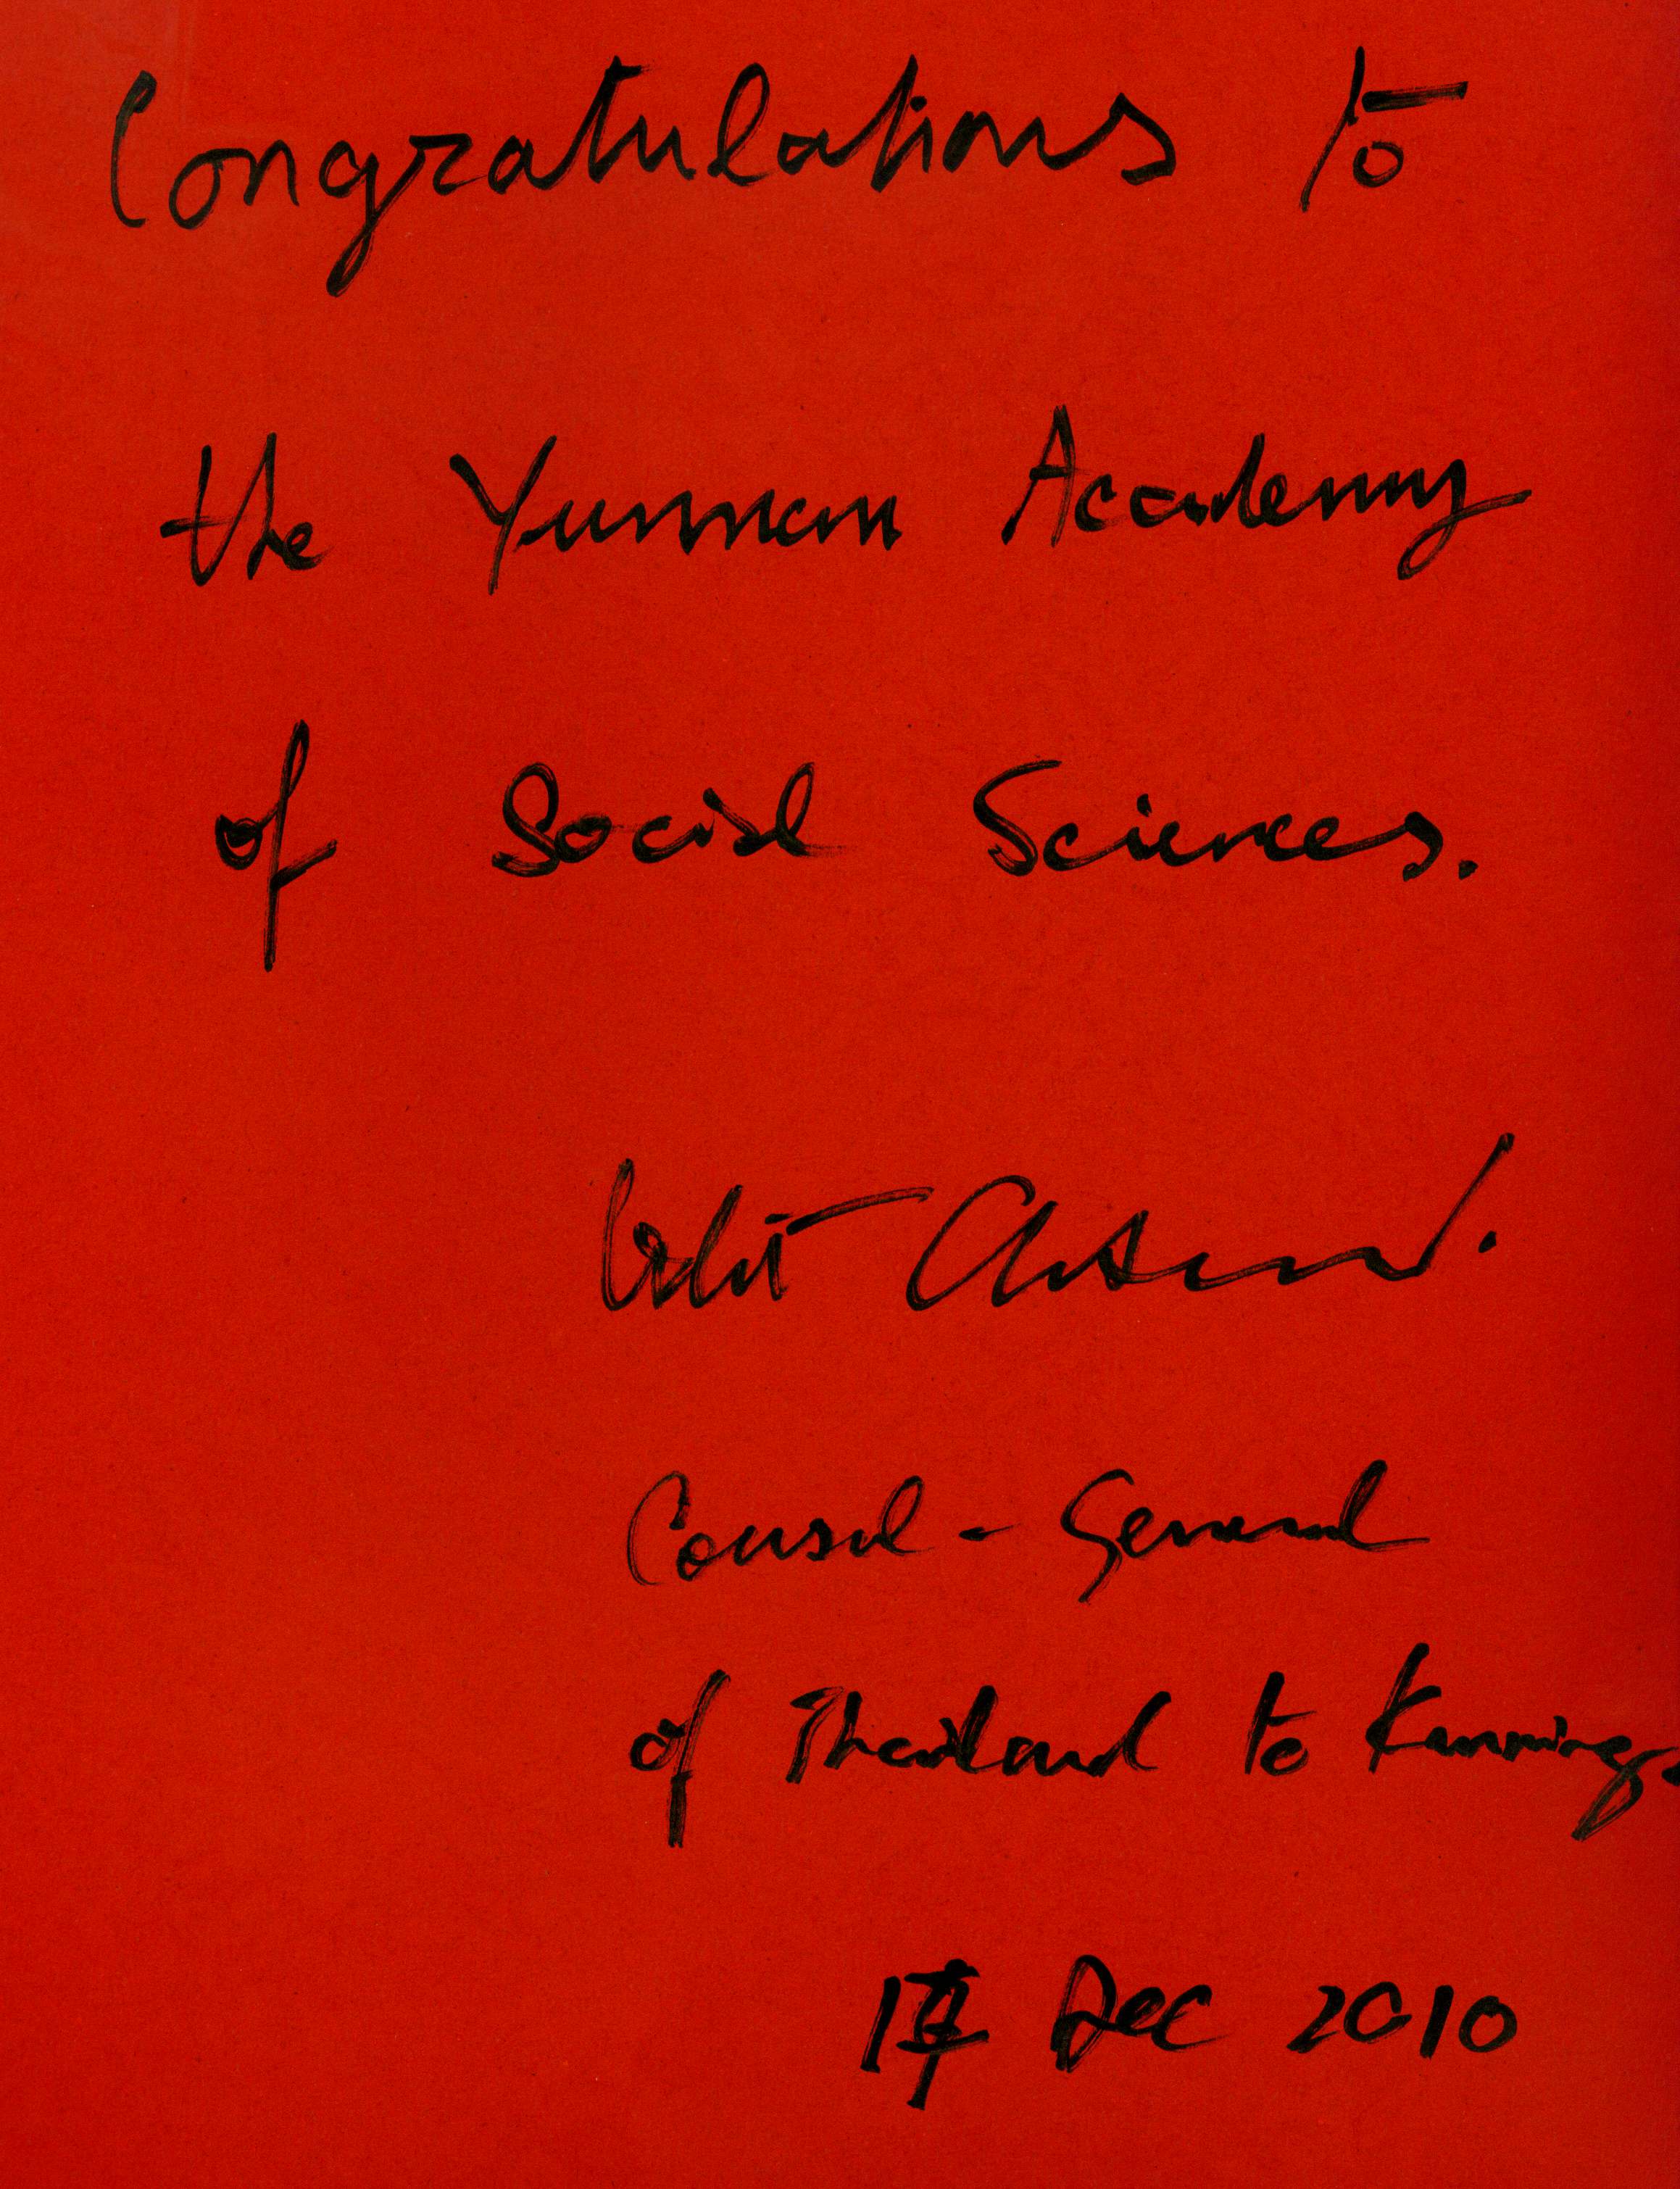 Congratulations to
the Yunnan Academy
of Social Sciences.
Consul-General
of Thailand to Kunming.
Dec 2010